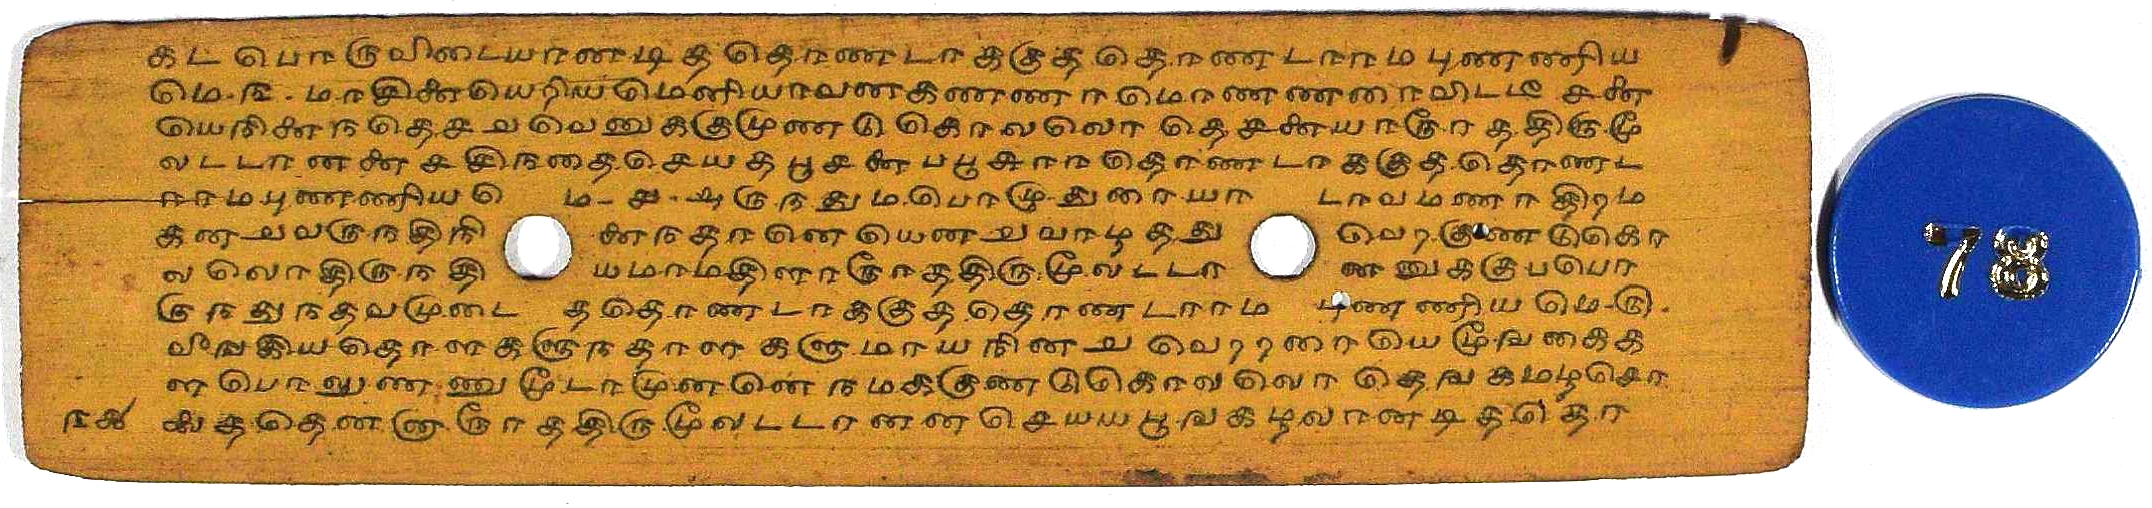 கட பொருவிடையானடித தொணடாககுத தொணடராம புணணிய
மெ-ந-மாதினெயெரியமெனியாவனகணணாமொணணரைவிடடீ சன
யெநினநதெசவவெனுககுமுணடுகொலலொ தெசனயாரூரததிருமூ
லடடானனசசிநதைசெயதபூசனபபூசுரரதொணடாககுததொணட
ராம புணணியமெ-ச-ஷருநதுமபொழுதுரையாடாவமணரதிறம
கனவவருநதிநினநதானெயெனவவாழததுவெறகுணடுகொ
லலொதிருநதியமாமதிளாரூரததிருமூலடடானனுககுபபொ
ருநதுநதவமுடைததொணடாககுததொணடராம புணணிய மெ-ரு.
வீஙகியதொளகளுநதாளகளுமாயநினவவெறறரையெமூஙகைக
ளபொலுணணுமூடாமுனனெநமககுணடுகொலலொதெஙகமழசொ
லைததெனனாரூரததிருமூலடடானனசெயயபூஙகழலானடிததொ
ந௯
78